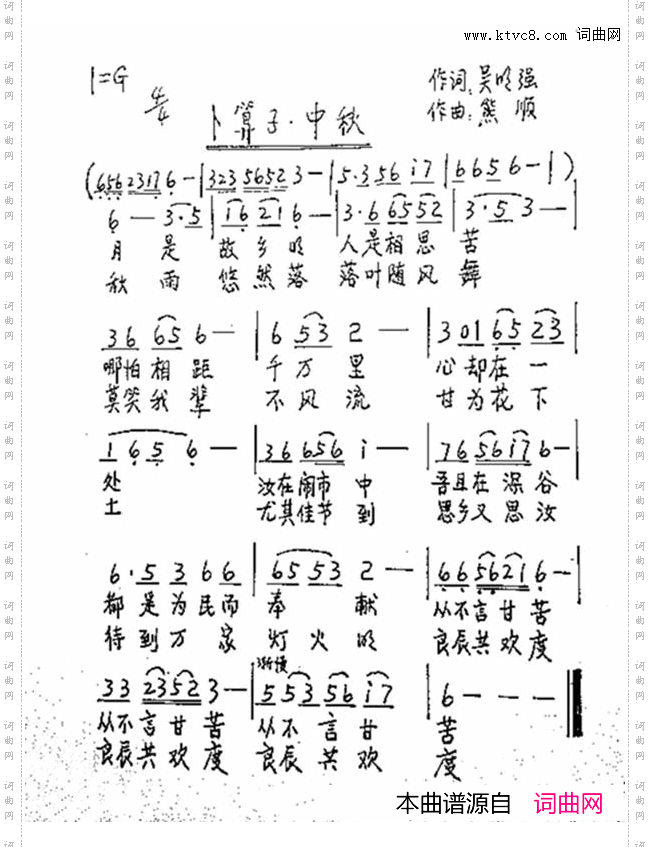 www.ktvc8.com 词曲网
1=G
4/4
卜算子·中秋
作词:吴明强
作曲:熊 顺
(656 2317 6 - | 323 5652 3 - | 5·3 56 i7 | 6656 - | )
6 - 3·5 | 16 21 6 - | 3·6 65 52 | 3·5 3 - |
月 是 故 乡 明 人是相思 苦
秋 雨 悠然落 落叶随风 舞
36 65 6 - | 6 53 2 - | 3 01 65 23 |
哪怕相 距 千 万 里 心 却在一
莫笑我 辈 不 风 流 甘 为花下
1 6 5 6 - | 36 656 i - | 76 56i7 6 - |
处 汝在闹市 中 吾且在 深谷
土 尤其佳节 到 思乡又 思汝
6·5 3 6 6 | 65 53 2 - | 66 5621 6 - |
都 是 为 民而 奉 献 从不言甘 苦
待 到 万 家 灯 火 明 良辰共欢度
渐慢
33 2352 3 - | 5 53 56 i7 | 6 - - - |
从不 言 甘 苦 从 不 言 甘 苦
良辰 共 欢 度 良辰 共 欢 度
本曲谱源自 词曲网